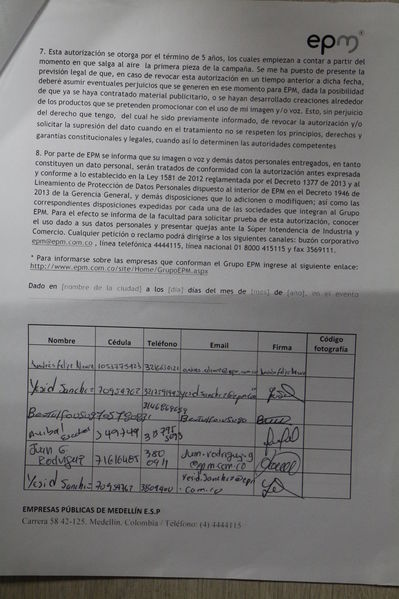 epm®
7. Esta autorización se otorga por el término de 5 años, los cuales empiezan a contar a partir del
momento en que salga al aire la primera pieza de la campaña. Se me ha puesto de presente la
previsión legal de que, en caso de revocar esta autorización en un tiempo anterior a dicha fecha,
deberé asumir eventuales perjuicios que se generen en ese momento para EPM, dada la posibilidad
de que ya se haya contratado material publicitario, o se hayan desarrollado creaciones alrededor
de los productos que se pretenden promocionar con el uso de mi imagen y/o voz. Esto, sin perjuicio
del derecho que tengo, del cual he sido previamente informado, de revocar la autorización y/o
solicitar la supresión del dato cuando en el tratamiento no se respeten los principios, derechos y
garantías constitucionales y legales, cuando así lo determinen las autoridades competentes
8. Por parte de EPM se informa que su imagen o voz y demás datos personales entregados, en tanto
constituyen un dato personal, serán tratados de conformidad con la autorización antes expresada
y conforme a lo establecido en la Ley 1581 de 2012 reglamentada por el Decreto 1377 de 2013 y al
Lineamiento de Protección de Datos Personales dispuesto al interior de EPM en el Decreto 1946 de
2013 de la Gerencia General, y demás disposiciones que lo adicionen o modifiquen; así como las
correspondientes disposiciones expedidas por cada una de las sociedades que integran al Grupo
EPM. Para el efecto se informa de la facultad para solicitar prueba de esta autorización, conocer
el uso dado a sus datos personales y presentar quejas ante la Súper Intendencia de Industria y
Comercio. Cualquier petición o reclamo podrá dirigirse a los siguientes canales: buzón corporativo
epm@epm.com.co , línea telefónica 4444115, línea nacional 01 8000 415115 y fax 3569111.
* Para informarse sobre las empresas que conforman el Grupo EPM ingrese al siguiente enlace:
http://www.epm.com.co/site/Home/GrupoEPM.aspx
Dado en [nombre de la ciudad] a los [día] días del mes de [mes] de [año], en el evento
Nombre Cédula Teléfono Email Firma Código fotografía
Yesid Sanchez 70954767
Anibal 349749
Juan G. Rodriguez 71616485 380 0911 Juan.rodriguez.g @epm.com.co
Yesid Sanchez 70954767 Yesid.Sanchez@epm .com.co
EMPRESAS PÚBLICAS DE MEDELLÍN E.S.P
Carrera 58 42-125. Medellín, Colombia / Teléfono: (4) 4444115